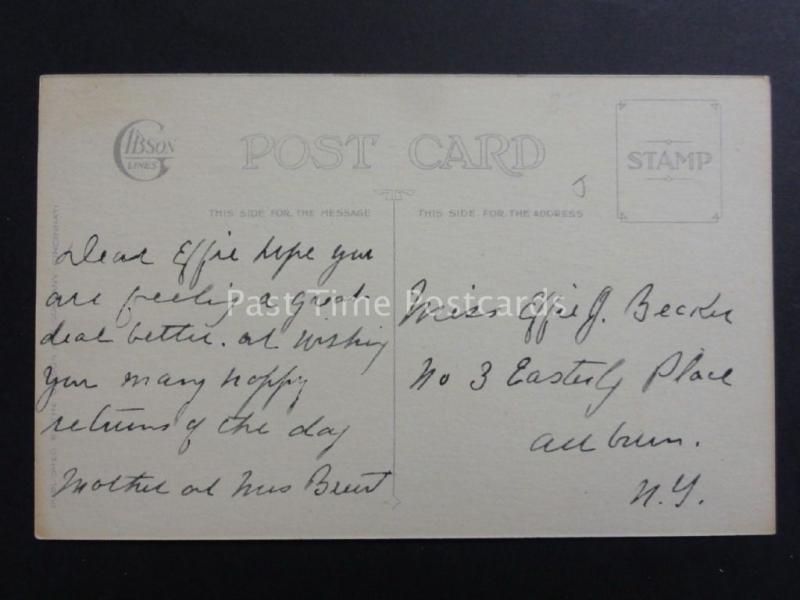 GIBSON
LINES
POST CARD
STAMP
THIS SIDE FOR THE MESSAGE
THIS SIDE FOR THE ADDRESS
Dear Effie hope you
are feeling a great
deal better. at wishing
you many happy
returns of the day
Mother at Mrs
Miss Effie J. Becker
No 3 Easterly Place
auburn.
N.Y.
Past Time Postcards
CINCINNATI